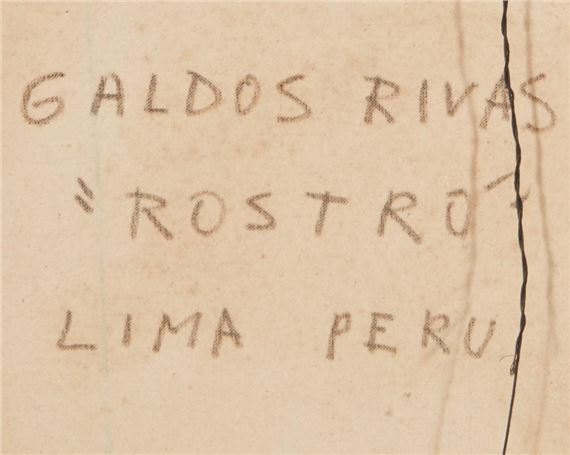 GALDOS RIVAS
"ROSTRO"
LIMA PERU